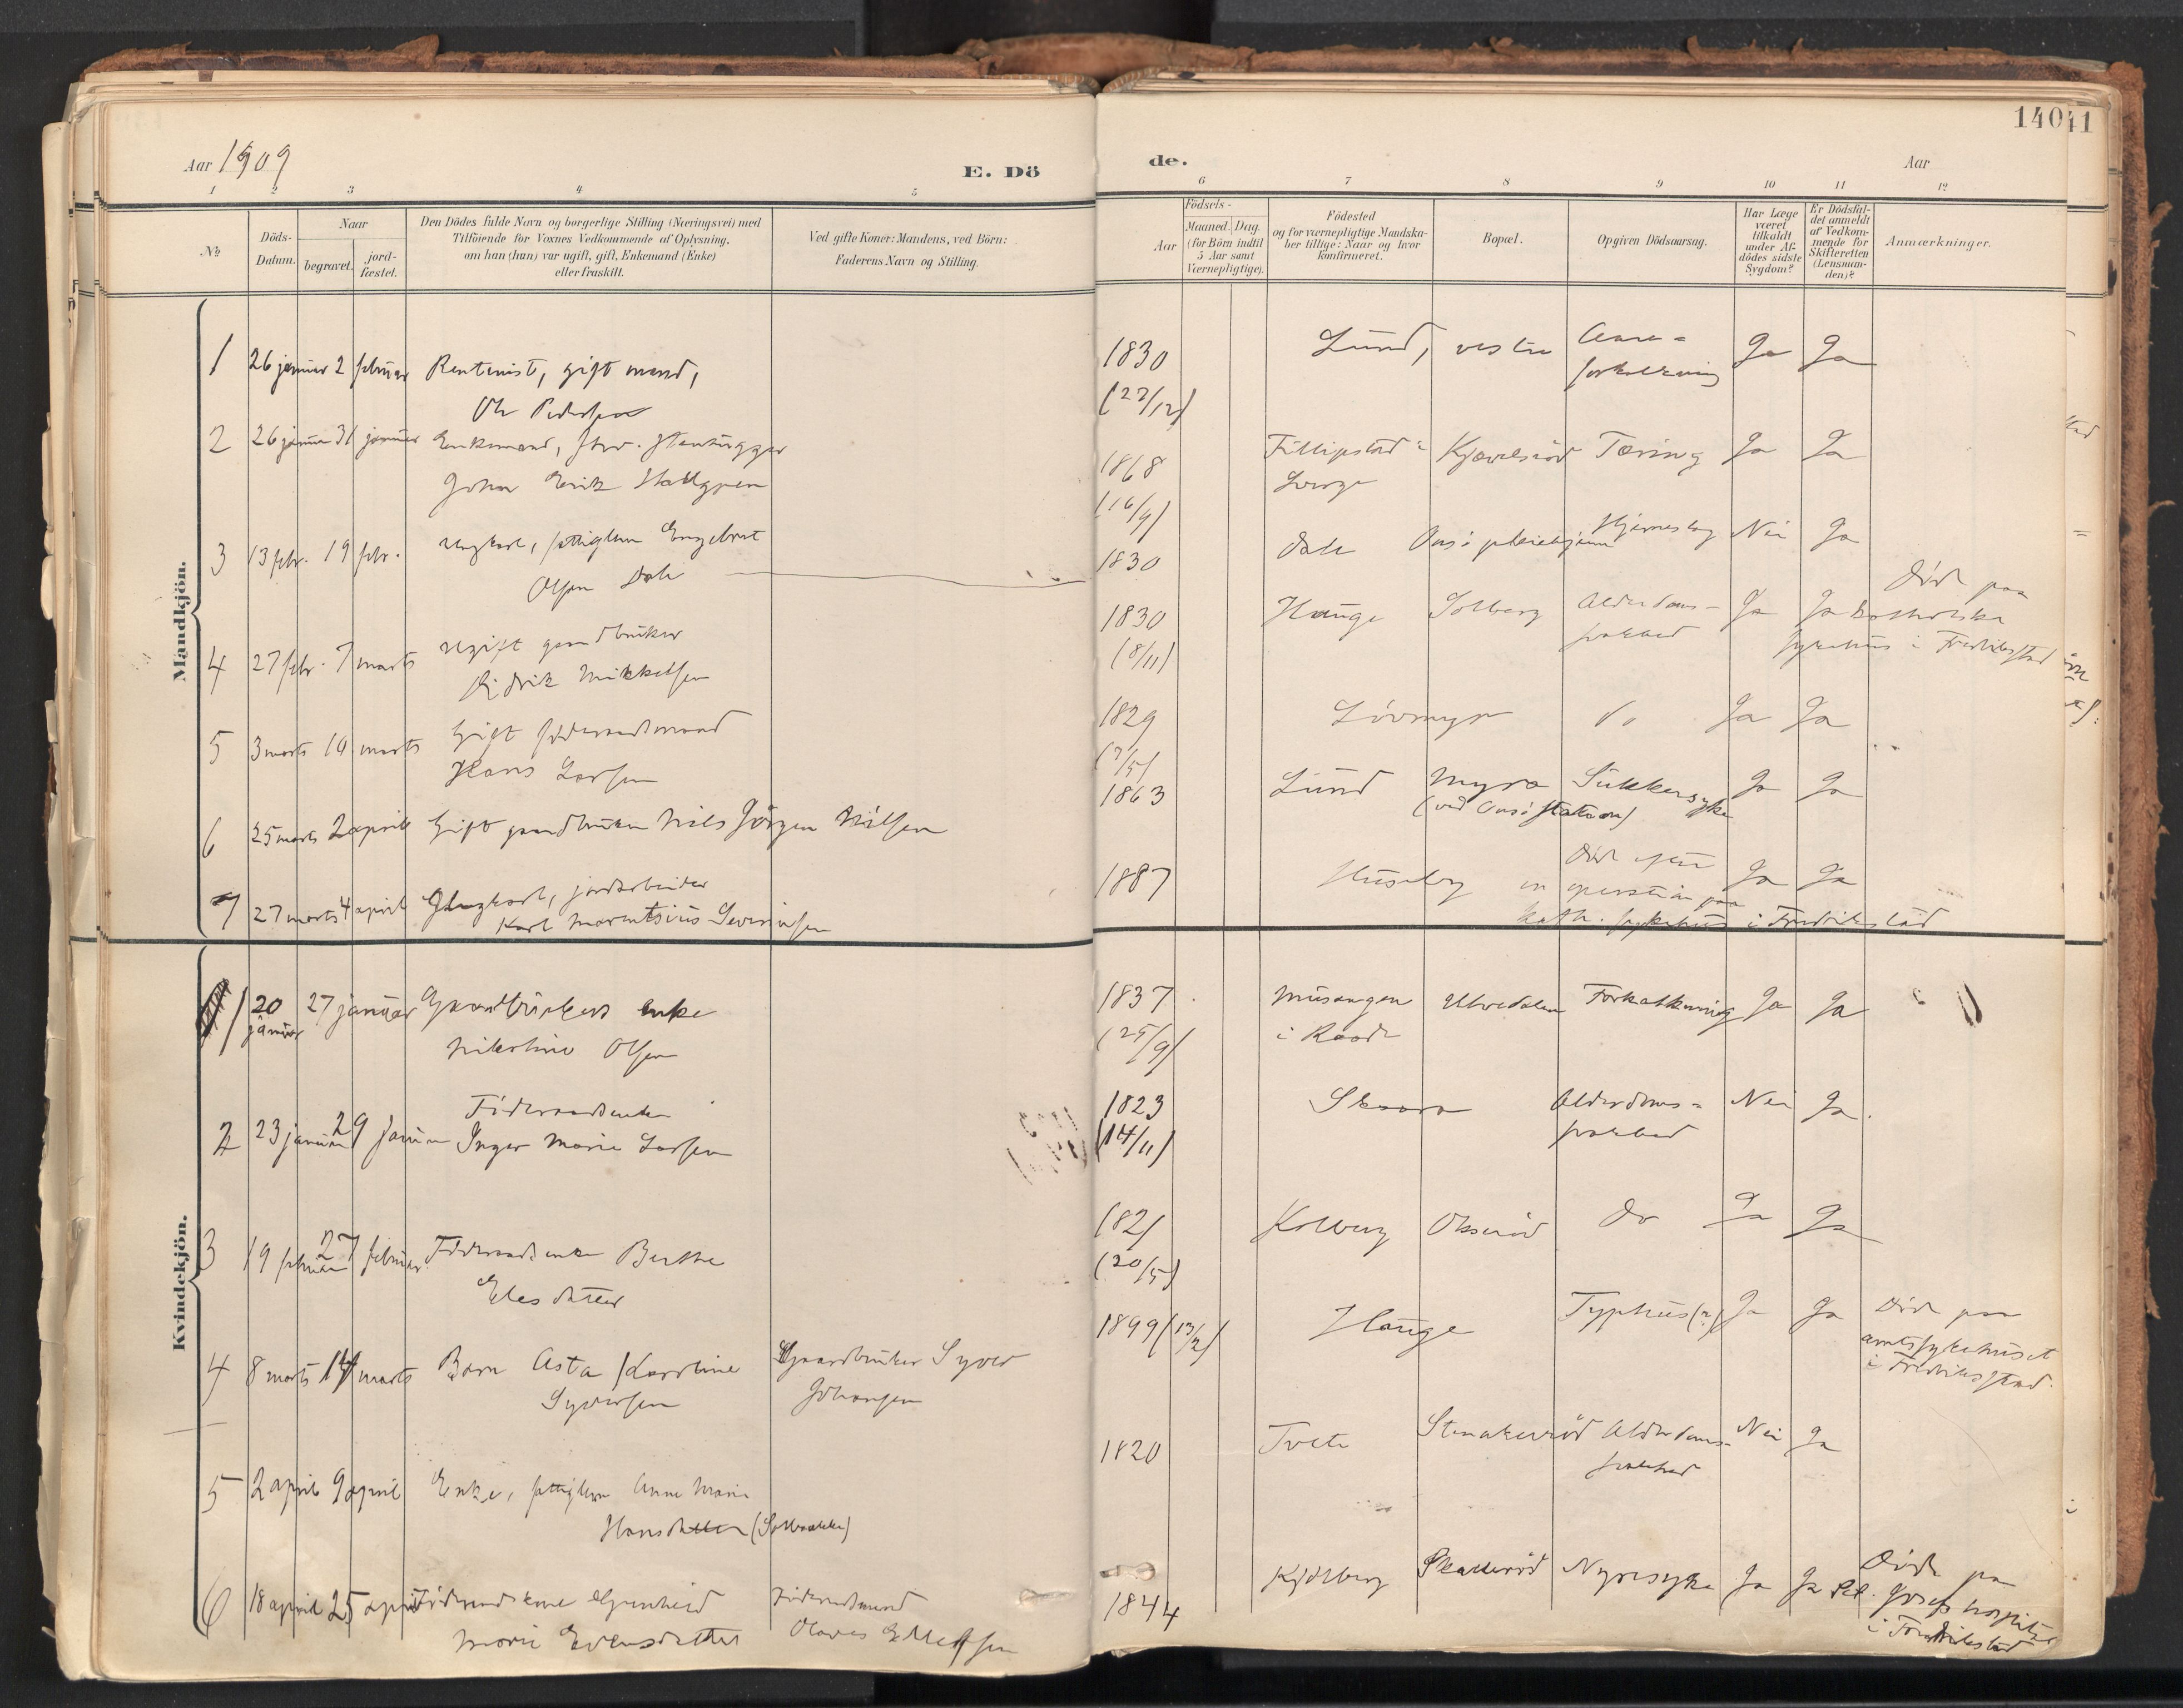 Aar 1909
E. Dö
1 2 3 4 5
No
Döds-
Datum.
Naar
begravet.
jord-
fæstet.
Den Dödes fulde Navn og borgerlige Stilling (Næringsvei) med
Tilföiende for Voxnes Vedkommende af Oplysning,
om han (hun) var ugift, gift, Enkemand (Enke)
eller fraskilt.
Ved gifte Koner: Mandens, ved Börn:
Faderens Navn og Stilling.
Mandkjön.
1 26 januar 2 februar Rentenist, gift mand,
Ole Pedersen
2 26 januar 31 januar Enkemand, Stenhugger
Johan Erik Hallgren
3 13 febr. 19 febr. Ungkarl, fattiglem Engebret
Olsen Dale
4 27 febr. 7 marts Ugift gaardbruker
Didrik Mikkelsen
5 3 marts 10 marts Gift föderaadsmand
Hans Larsen
6 25 marts 2 april Gift gaardbruker Nils Jörgen Nilsen
7 27 marts 4 april Ungkarl, jordarbeider
Karl Marentsius Severinsen
Kvindekjön.
1 20 januar 27 januar Gaardbrukers enke
Nikoline Olsen
2 23 januar 29 januar Föderaadsenke
Inger Marie Larsen
3 19 februar 27 februar Föderaadsenke Berthe
Elesdatter
4 8 marts 14 marts Barn Asta Karoline
Syversen
Gaardbruker Syver
Johansen
5 2 april 9 april Enke, fattiglem Anne Marie
Hansdatter (Solbrække)
6 18 april 25 april Föderaadskone Gunhild
Marie Evensdatter
Föderaadsmand
Olaves Ellefsen
140
41
de.
Aar
6 7 8 9 10 11 12
Aar
Födsels-
Maaned. Dag.
(for Börn indtil
5 Aar samt
Værnepligtige).
Födested
og for værnepligtige Mandska-
ber tillige: Naar og hvor
konfirmeret.
Bopæl.
Opgiven Dödsaarsag.
Har Læge
været
tilkaldt
under Af-
dödes sidste
Sygdom?
Er Dödsfal-
det anmeldt
af Vedkom-
mende for
Skifteretten
(Lensman-
den)?
Anmærkninger.
1830 Lund, vestre Aare=
forkalkning Ja Ja
(27/12)
1868 Fillipstad i
Sverge Kjærelsröd Tæring Ja Ja
(16/9)
1830 Dale Onsö pleiehjem Hjerneslag Nei Ja
1830 Hauge Solberg Alderdoms-
svakhed Ja Ja
(8/11)
Död paa
katholske
sykehus i Fredrikstad
1829 Lövmyr Do Ja Ja
(7/5)
1863 Lund Myra
(ved Onsö station) Sukkersyke Ja Ja
1887 Huseby Död efter
en operation paa
kath. sykehus i Fredrikstad Ja Ja
1837 Musangen
i Raade Ulvedalen Forkalkning Ja Ja
(25/9)
1823 Skaara Alderdoms=
svakhed Nei Ja.
(14/11)
1821 Kolberg Okseröd do Ja Ja
(20/5)
1899 (13/2) Hauge Typhus(?) Ja Ja Död paa
amtssykehuset
i Fredriksstad.
1820 Tvete Stenakerröd Alderdoms-
svakhed Nei Ja
1844 Kjölberg Skatteröd Nyresyke Ja Ja Död paa
Skt. Josefs hospital
i Fredrikstad